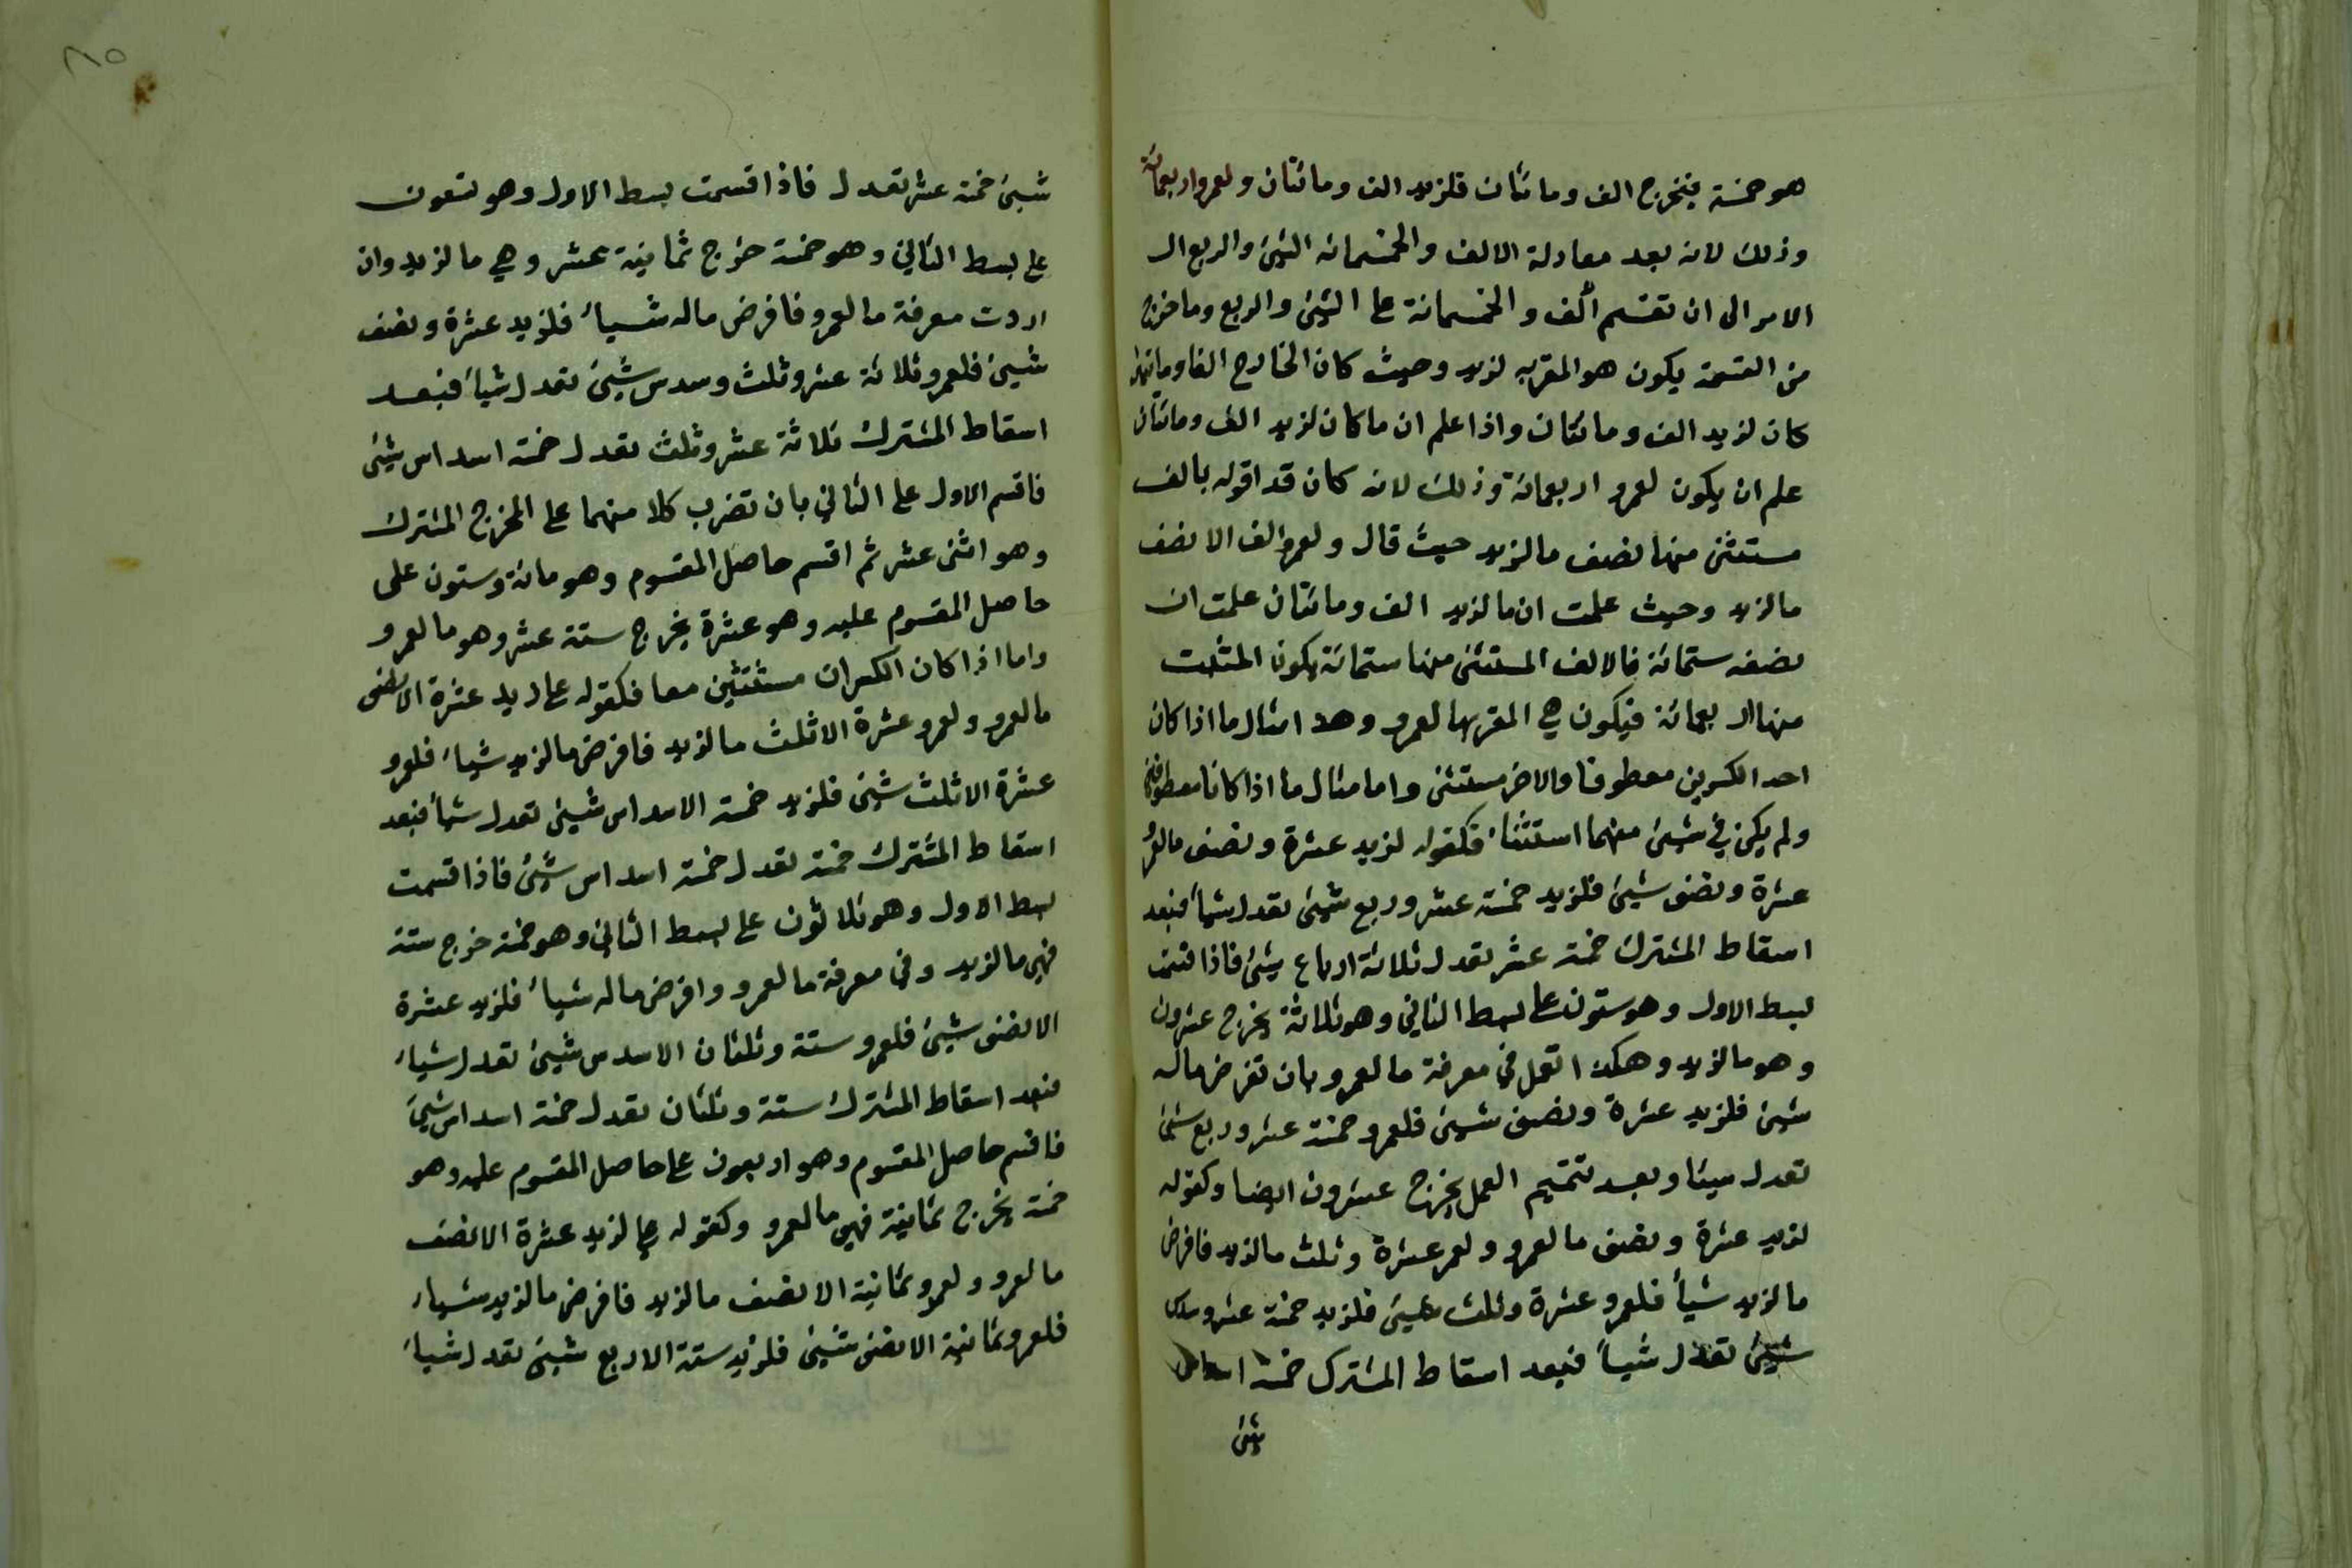 هو خمسة فيخرج الف ومائتان فلزيد الف ومائتان ولعمرو اربعمائة
وذلك لانه بعد معادلة الالف والخمسمائه الشئ والربع ال
الامر الى ان تقسم ألف والخمسمائة على الشئ والربع وما خرج
من القسمة يكون هو المقر به لزيد وحيث كان الخارج الفا ومائتان
كان لزيد الف ومائتان واذا علم ان ما كان لزيد الف ومائتان
علم ان يكون لعمرو اربعمائة وذلك لانه كان قد اقر له بالف
مستثنى منها نصف ما لزيد حيث قال ولعمرو الف الا نصف
ما لزيد وحيث علمت ان ما لزيد الف ومائتان علمت ان
نصفه ستمائة فالالف المستثنى منها ستمائة يكون المثبت
منها اربعمائة فيكون هي المقر بها لعمرو وهذا مثال ما اذا كان
احد الكسرين معطوفا والاخر مستثنى واما مثال ما اذا كانا معطوفين
ولم يكن في شيئ منهما استثناء فكقوله لزيد عشرة ونصف ما لعمرو
عشرة ونصف شيئ فلزيد خمسة عشر وربع شيئ تعدل شيأ فبعد
اسقاط المشترك خمسة عشر تعدل ثلاثة ارباع شيئ فاذا قسمت
بسط الاول وهو ستون على بسط الثاني وهو ثلاثة يخرج عشرون
وهو ما لزيد وهكذا تعمل في معرفة ما لعمرو بان تفرض ماله
شيئ فلزيد عشرة ونصف شيئ فلعمرو خمسة عشر وربع شئ
تعدل شيئا وبعد تتميم العمل يخرج عشرون ايضا وكقوله
لزيد عشرة ونصف ما لعمرو ولعمر عشرة وثلث ما لزيد فافرض
ما لزيد شيأ فلعمرو عشرة وثلث شيئ فلزيد خمسة عشر وسدس
شيئ تعدل شيأ فبعد اسقاط المشترك خمسة اسداس
شئ
شيئ خمسة عشر تعدل فاذا قسمت بسط الاول وهو تسعون
على بسط الثاني وهو خمسة خرج ثمانية عشر وهي ما لزيد وان
اردت معرفة ما لعمرو فافرض ماله شيأ فلزيد عشرة ونصف
شيئ فلعمرو ثلاثة عشر وثلث وسدس شيئ تعدل شيأ فبعد
اسقاط المشترك ثلاثة عشر وثلث تعدل خمسة اسداس شيئ
فاقسم الاول على الثاني بان تضرب كلا منهما على المخرج المشترك
وهو اثنى عشر ثم اقسم حاصل المقسوم وهو مائة وستون على
حاصل المقسوم عليه وهو عشرة يخرج ستة عشر وهو ما لعمرو
واما اذا كان الكسران مستثنيين معا فكقوله على لزيد عشرة الا نصف
ما لعمرو ولعمرو عشرة الا ثلث ما لزيد فافرض ما لزيد شيأ فلعمرو
عشرة الا ثلث شيئ فلزيد خمسة الا سداس شيئ تعدل شيأ فبعد
اسقاط المشترك خمسة تعدل خمسة اسداس شيئ فاذا قسمت
بسط الاول وهو ثلاثون على بسط الثاني وهو خمسة خرج ستة
فهي ما لزيد وفي معرفة ما لعمرو وافرض ماله شيأ فلزيد عشرة
الا نصف شيئ فلعمرو ستة وثلثان الا سدس شيئ تعدل شيأ
فبعد اسقاط المشترك ستة وثلثان تعدل خمسة اسداس شيئ
فاقسم حاصل المقسوم وهو اربعون على حاصل المقسوم عليه وهو
خمسة يخرج ثمانية فهي ما لعمرو وكقوله على لزيد عشرة الا نصف
ما لعمرو ولعمرو ثمانية الا نصف ما لزيد فافرض ما لزيد شيأ
فلعمرو ثمانية الا نصف شيئ فلزيد ستة الا ربع شيئ تعدل شيأ